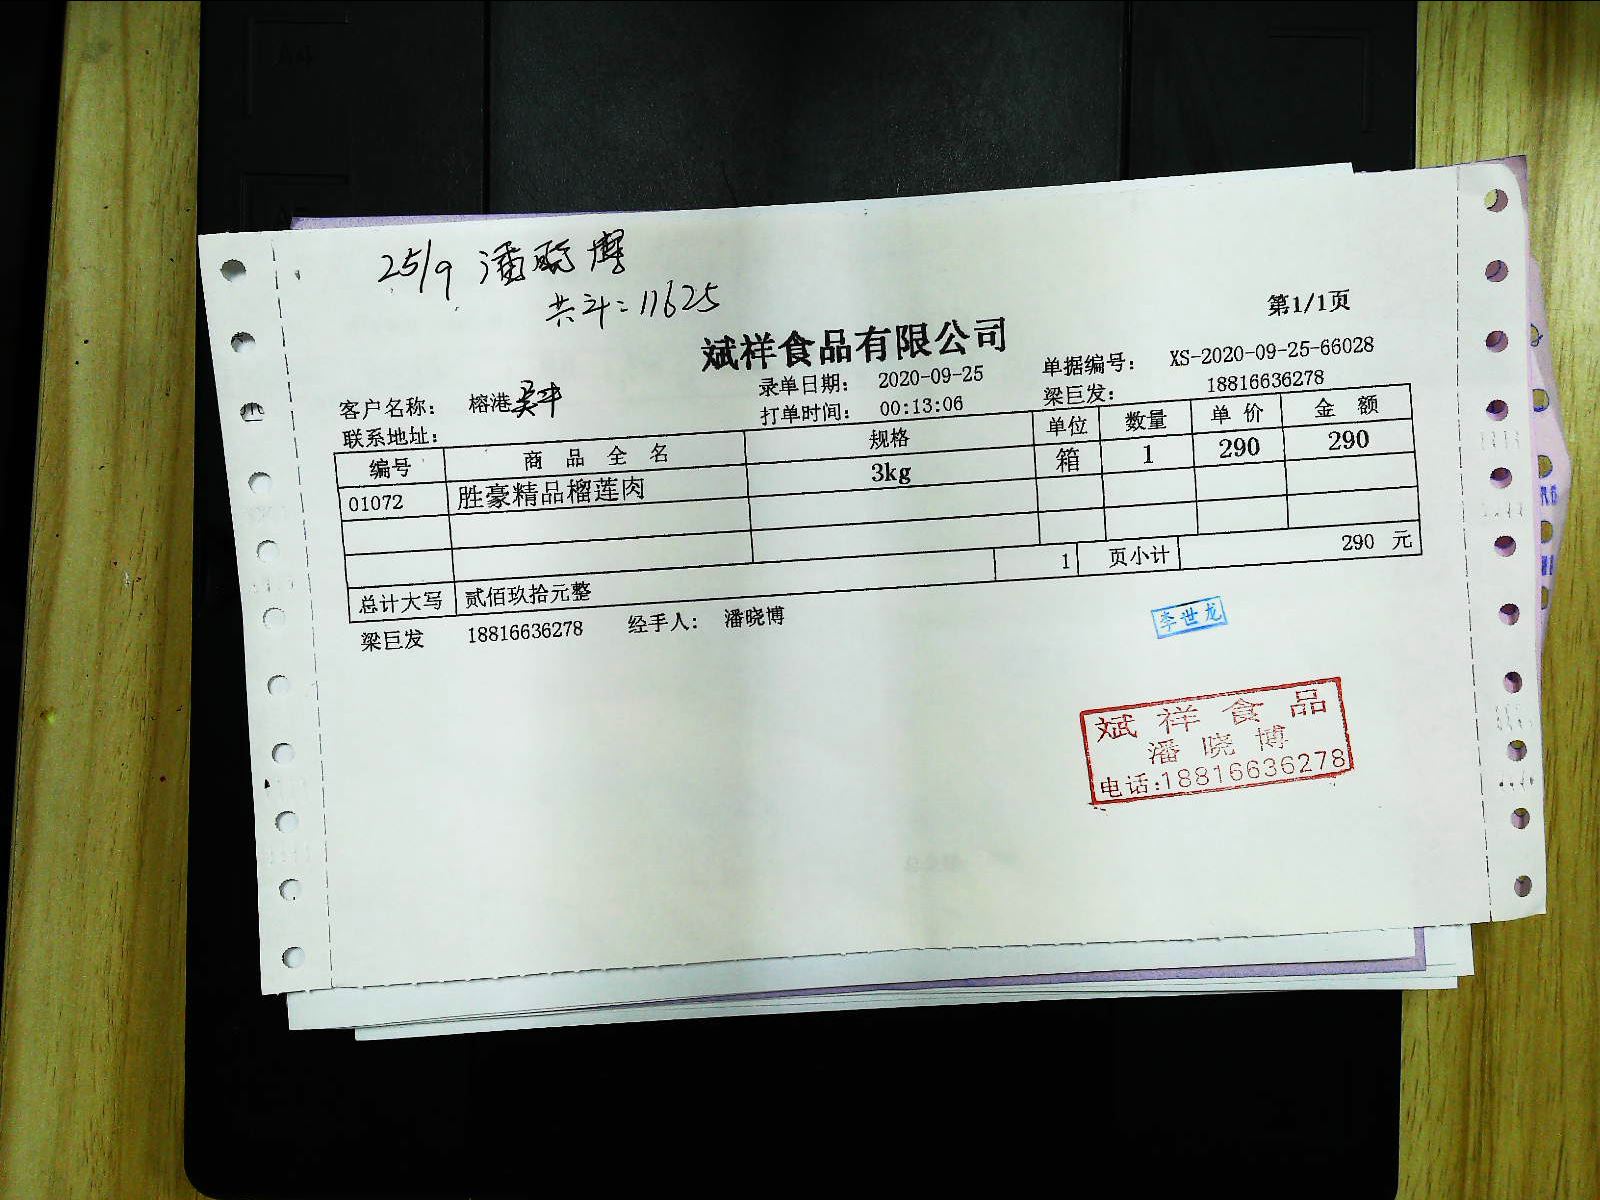 25/9 潘
11625
第1/1页
斌祥食品有限公司
录单日期: 2020-09-25 单据编号: XS-2020-09-25-66028
客户名称: 榕港 打单时间: 00:13:06 梁巨发: 18816636278
联系地址:
编号 商 品 全 名 规格 单位 数量 单 价 金 额
01072 胜豪精品榴莲肉 3kg 箱 1 290 290
1 页小计 290 元
总计大写 贰佰玖拾元整
梁巨发 18816636278 经手人: 潘晓博
李世龙
斌祥食品
潘晓博
电话:18816636278